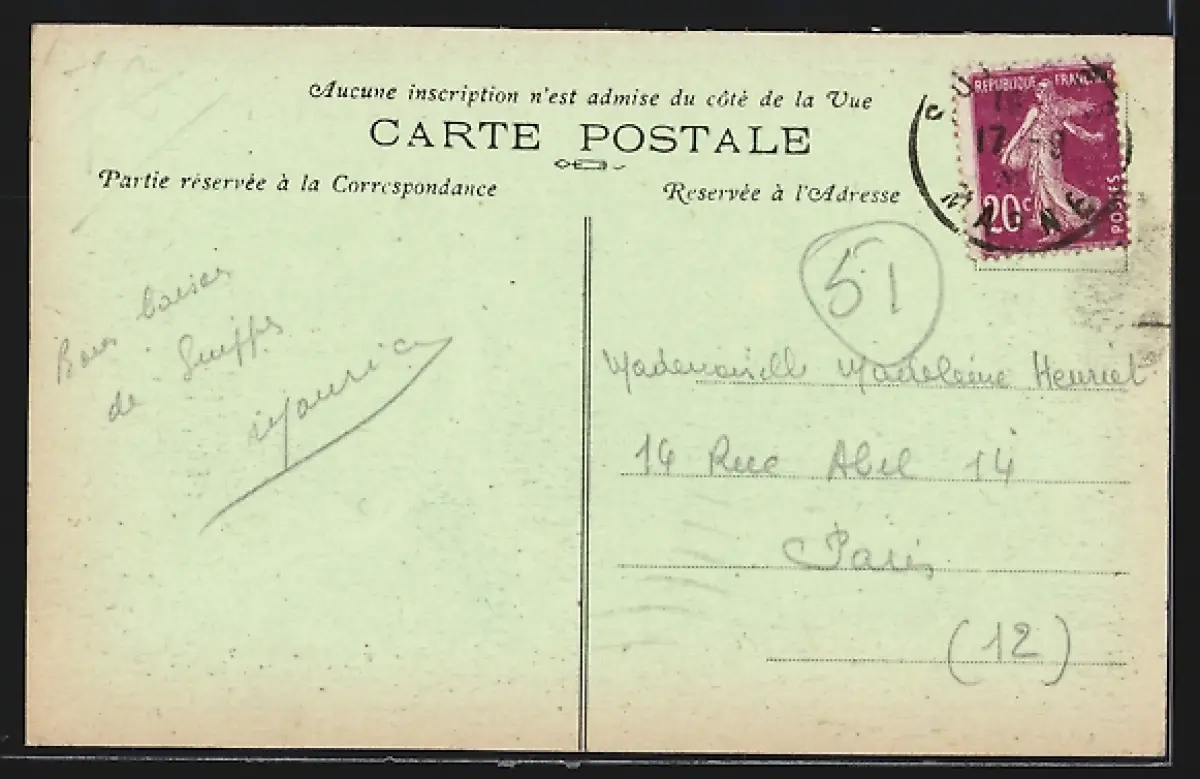 Aucune inscription n'est admise du côté de la Vue
CARTE POSTALE
Partie réservée à la Correspondance
Reservée à l'Adresse
REPUBLIQUE FRANÇAISE
17 - 9
20c
POSTES
MARNE
51
Bons baisers
de Suippes
Maurice
Mademoiselle Madeleine Henriet
14 Rue Abel 14
Paris
(12)